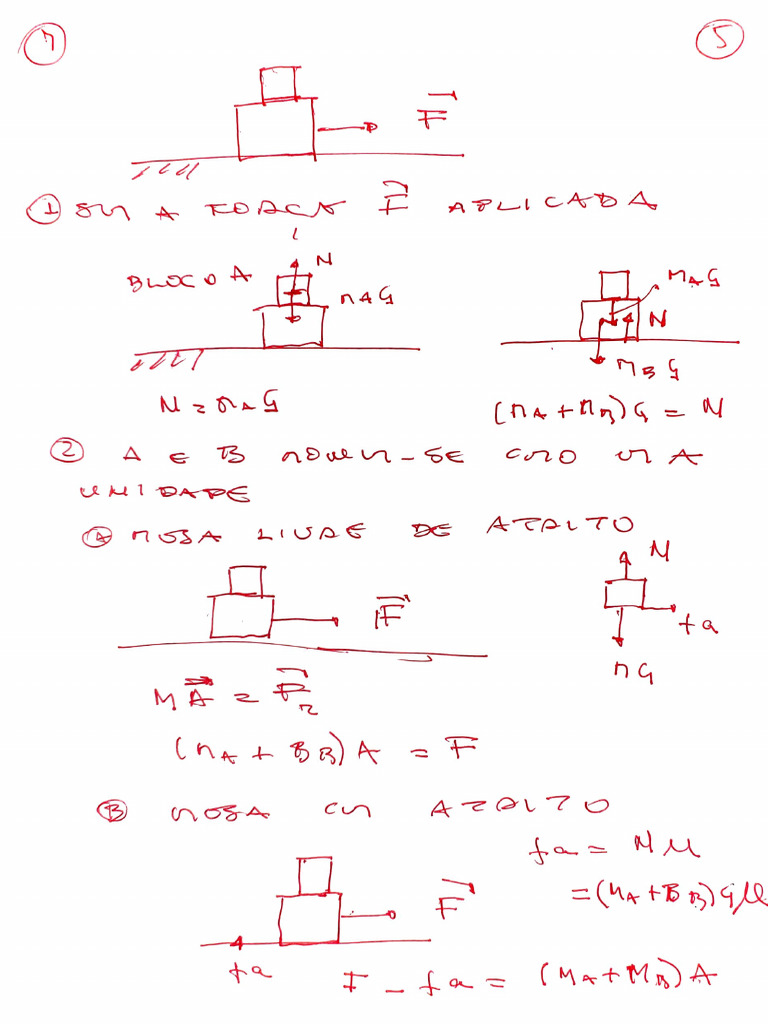 7 5
F
① SEM A FORÇA F APLICADA
BLOCO A N
mAG MAG
N
MBG
N = mAG (mA + mB)G = N
② A E B MOVEM-SE COMO UMA
UNIDADE
Ⓐ MESA LIVRE DE ATRITO
N
F fa
mG
MA = FR
(mA + BB)A = F
Ⓑ MESA COM ATRITO
fa = Nμ
= (mA + BB)Gμ
F
fa F - fa = (MA + MB)A